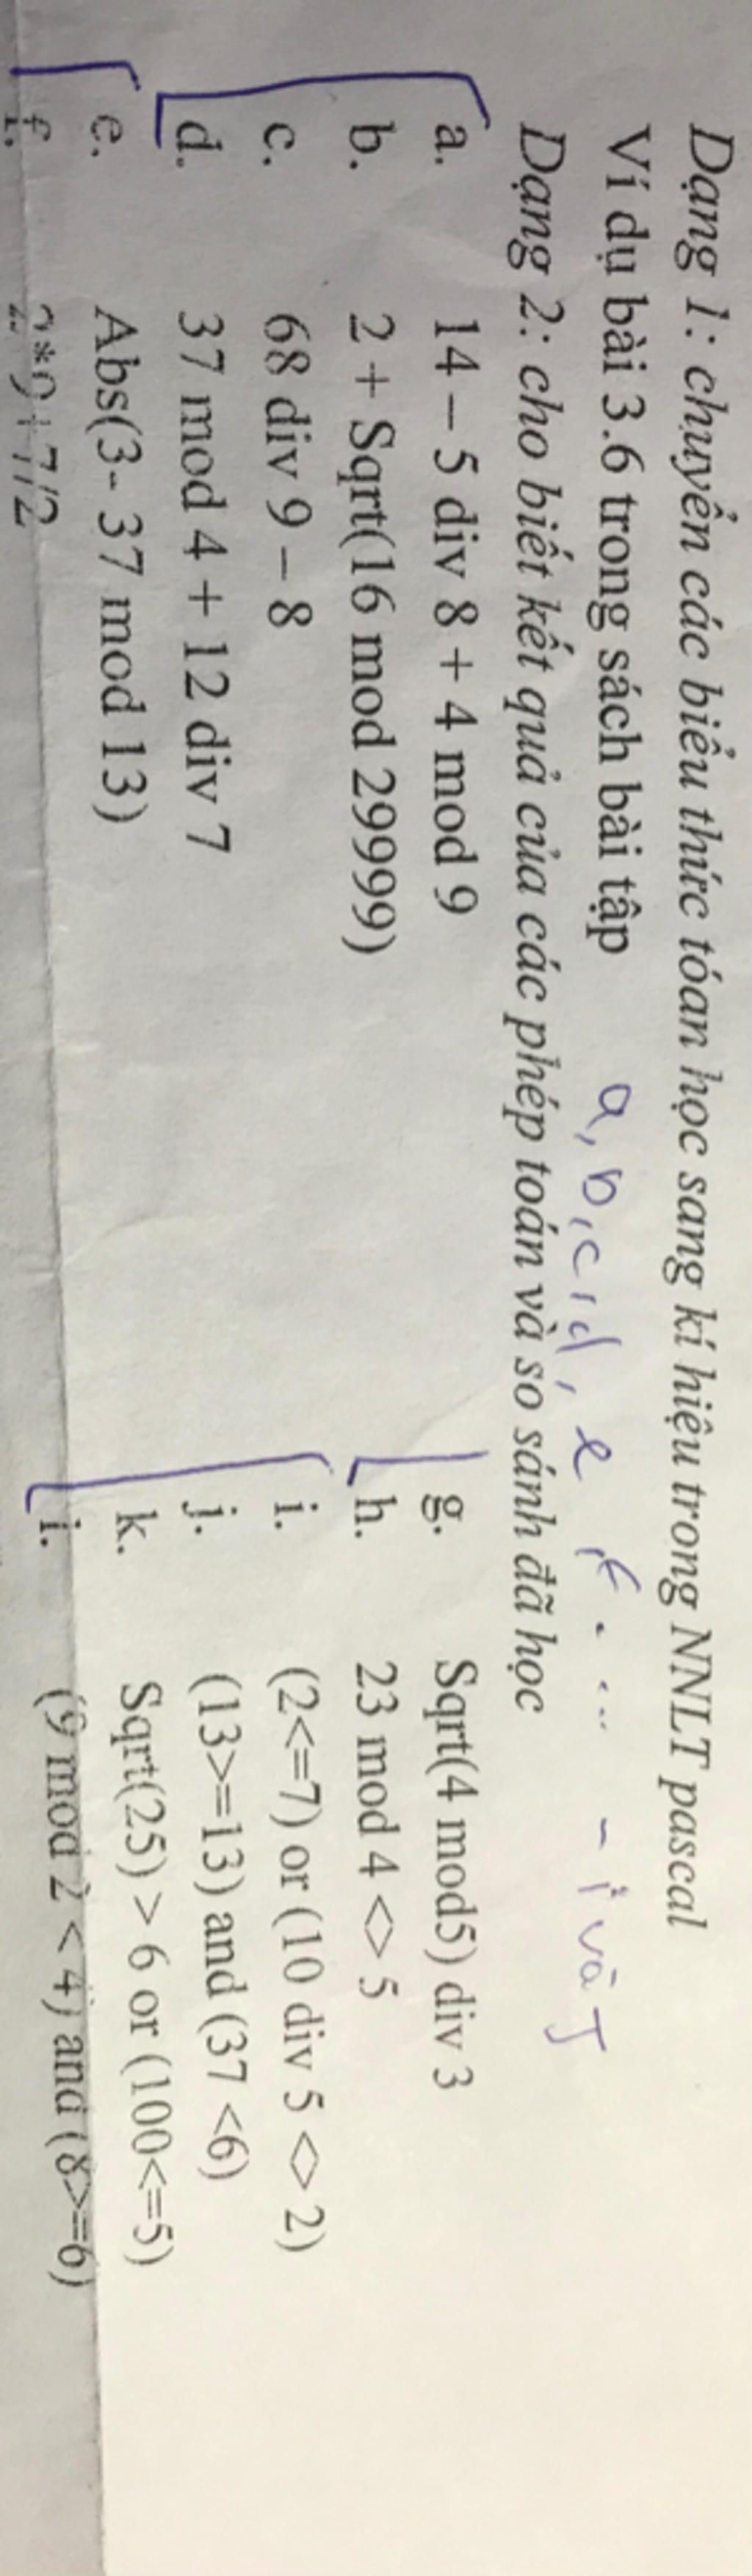 Dạng 1: chuyển các biểu thức tóan học sang kí hiệu trong NNLT pascal
Ví dụ bài 3.6 trong sách bài tập
a, b, c, d, e, f. ... - i và J
Dạng 2: cho biết kết quả của các phép toán và so sánh đã học
a. 14 – 5 div 8 + 4 mod 9
b. 2 + Sqrt(16 mod 29999)
c. 68 div 9 – 8
d. 37 mod 4 + 12 div 7
e. Abs(3- 37 mod 13)
f. 2*9+7/2
g. Sqrt(4 mod5) div 3
h. 23 mod 4 <> 5
i. (2<=7) or (10 div 5 <> 2)
j. (13>=13) and (37 <6)
k. Sqrt(25) > 6 or (100<=5)
i. (9 mod 2 < 4) and (8>=6)